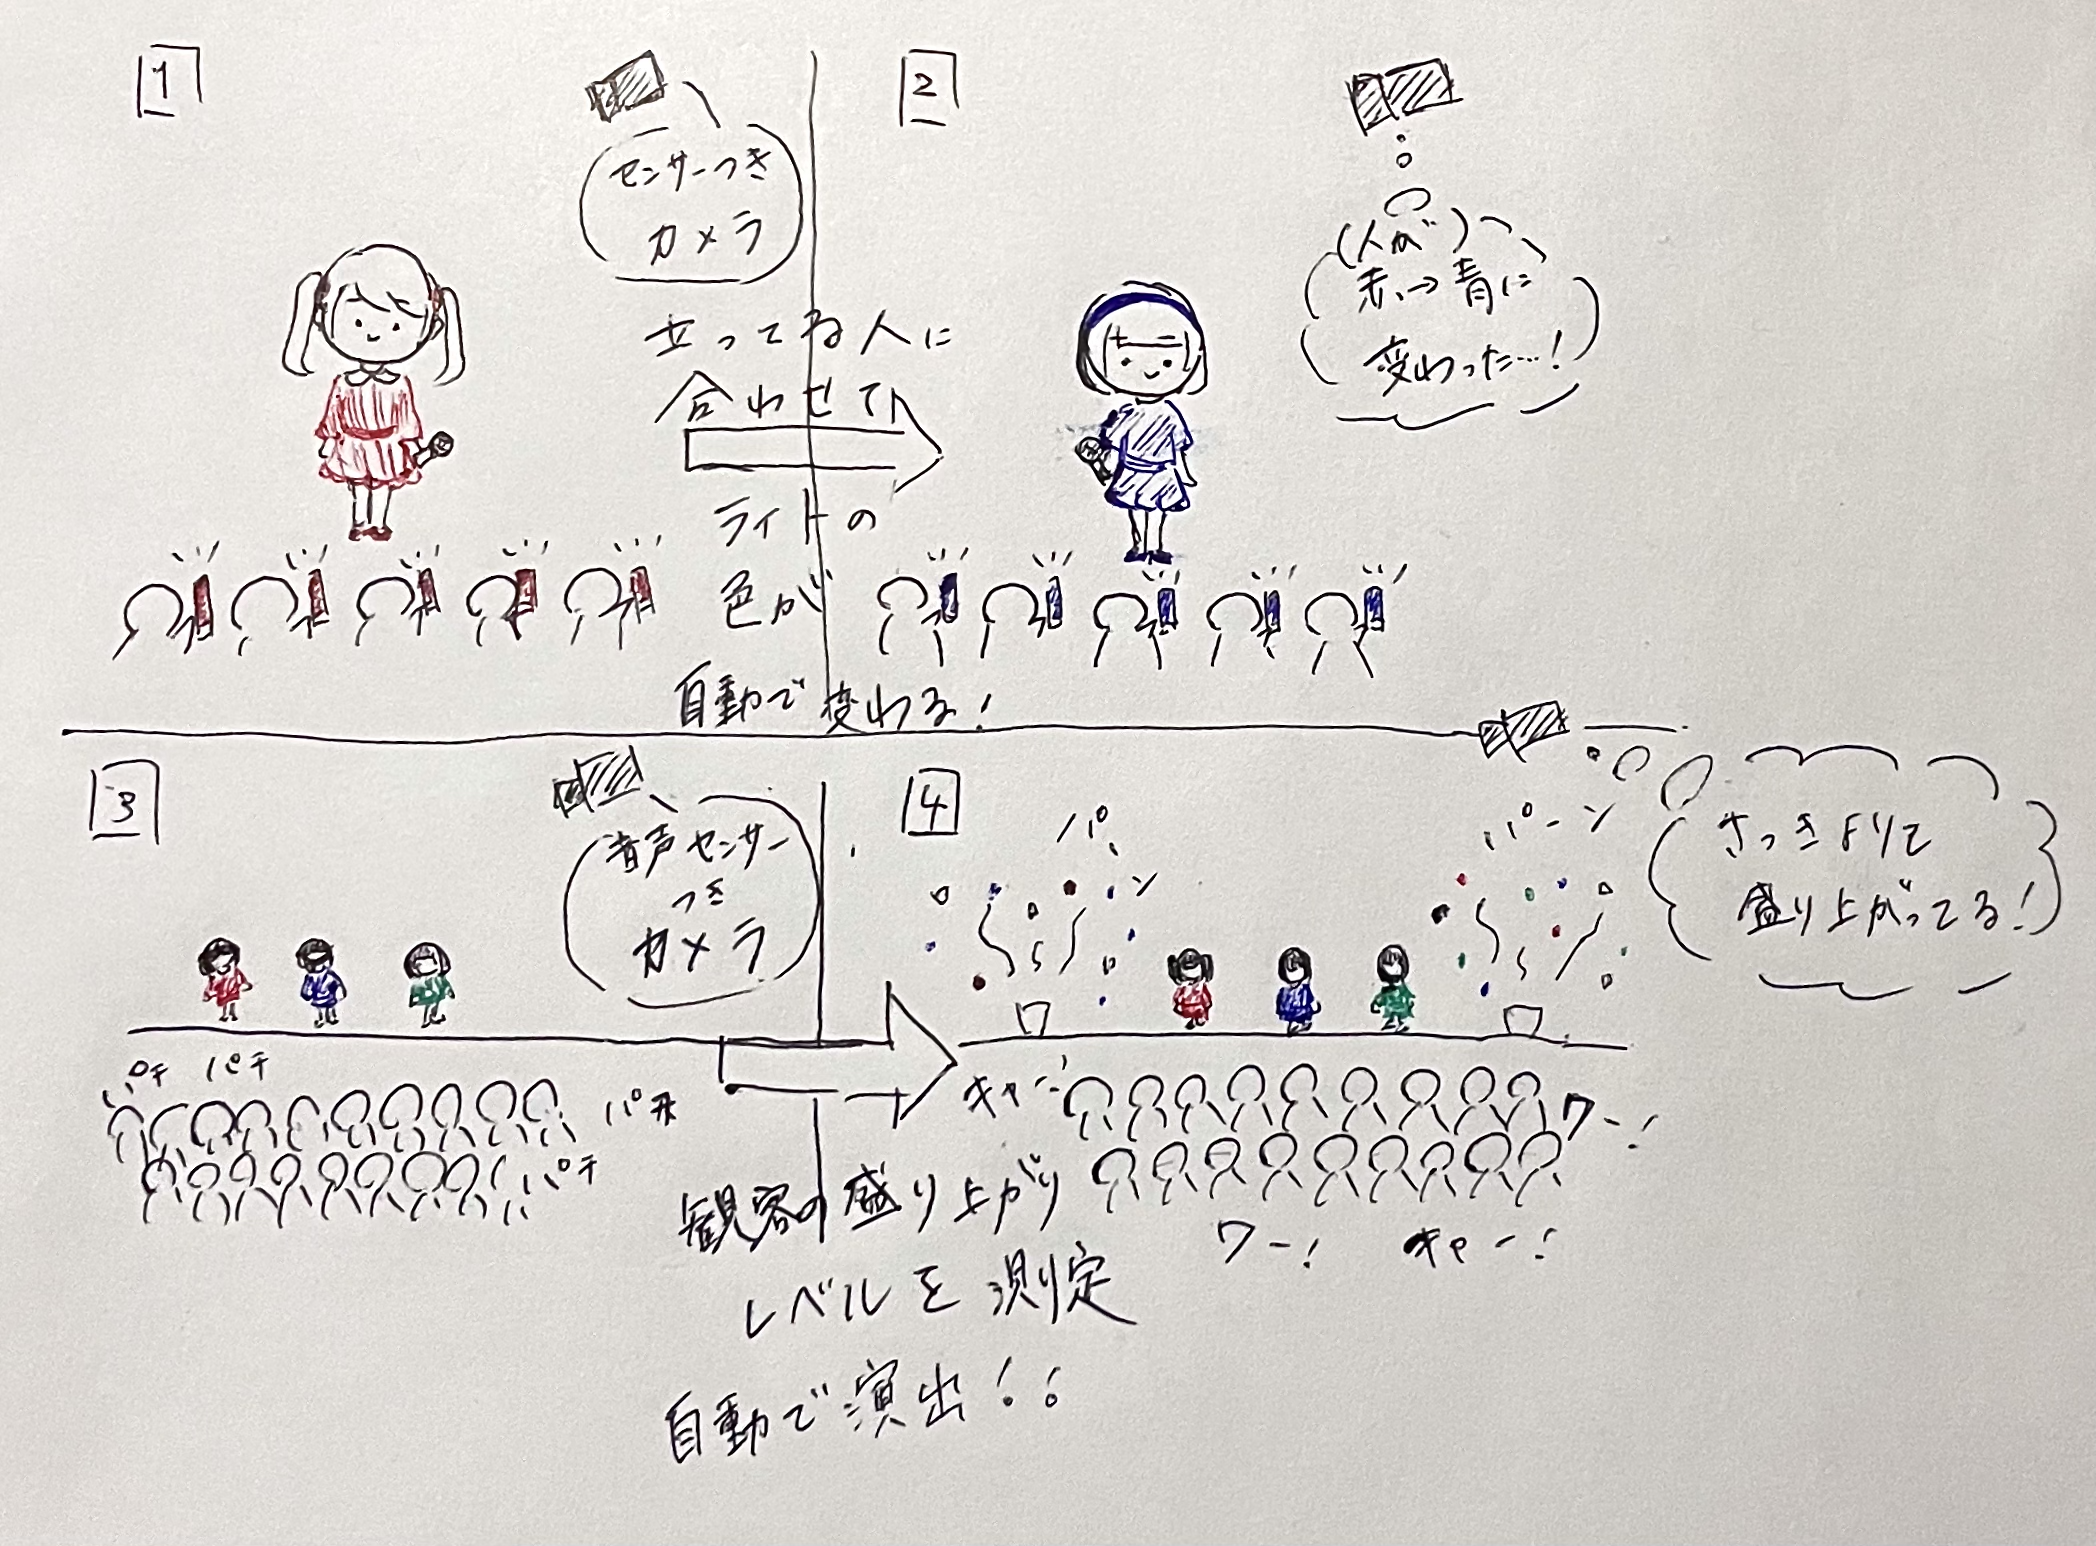 1
センサーつき
カメラ
立ってる人に
合わせて
ライトの
色が
自動で変わる!
2
(人が)
赤→青に
変わった…!
3
音声センサー
つき
カメラ
パチ パチ
パチ
パチ
観客の盛り上がり
レベルを測定
自動で演出!!
4
パーン
パーン
さっきよりも
盛り上がってる!
キャー!
ワー!
ワー! キャー!